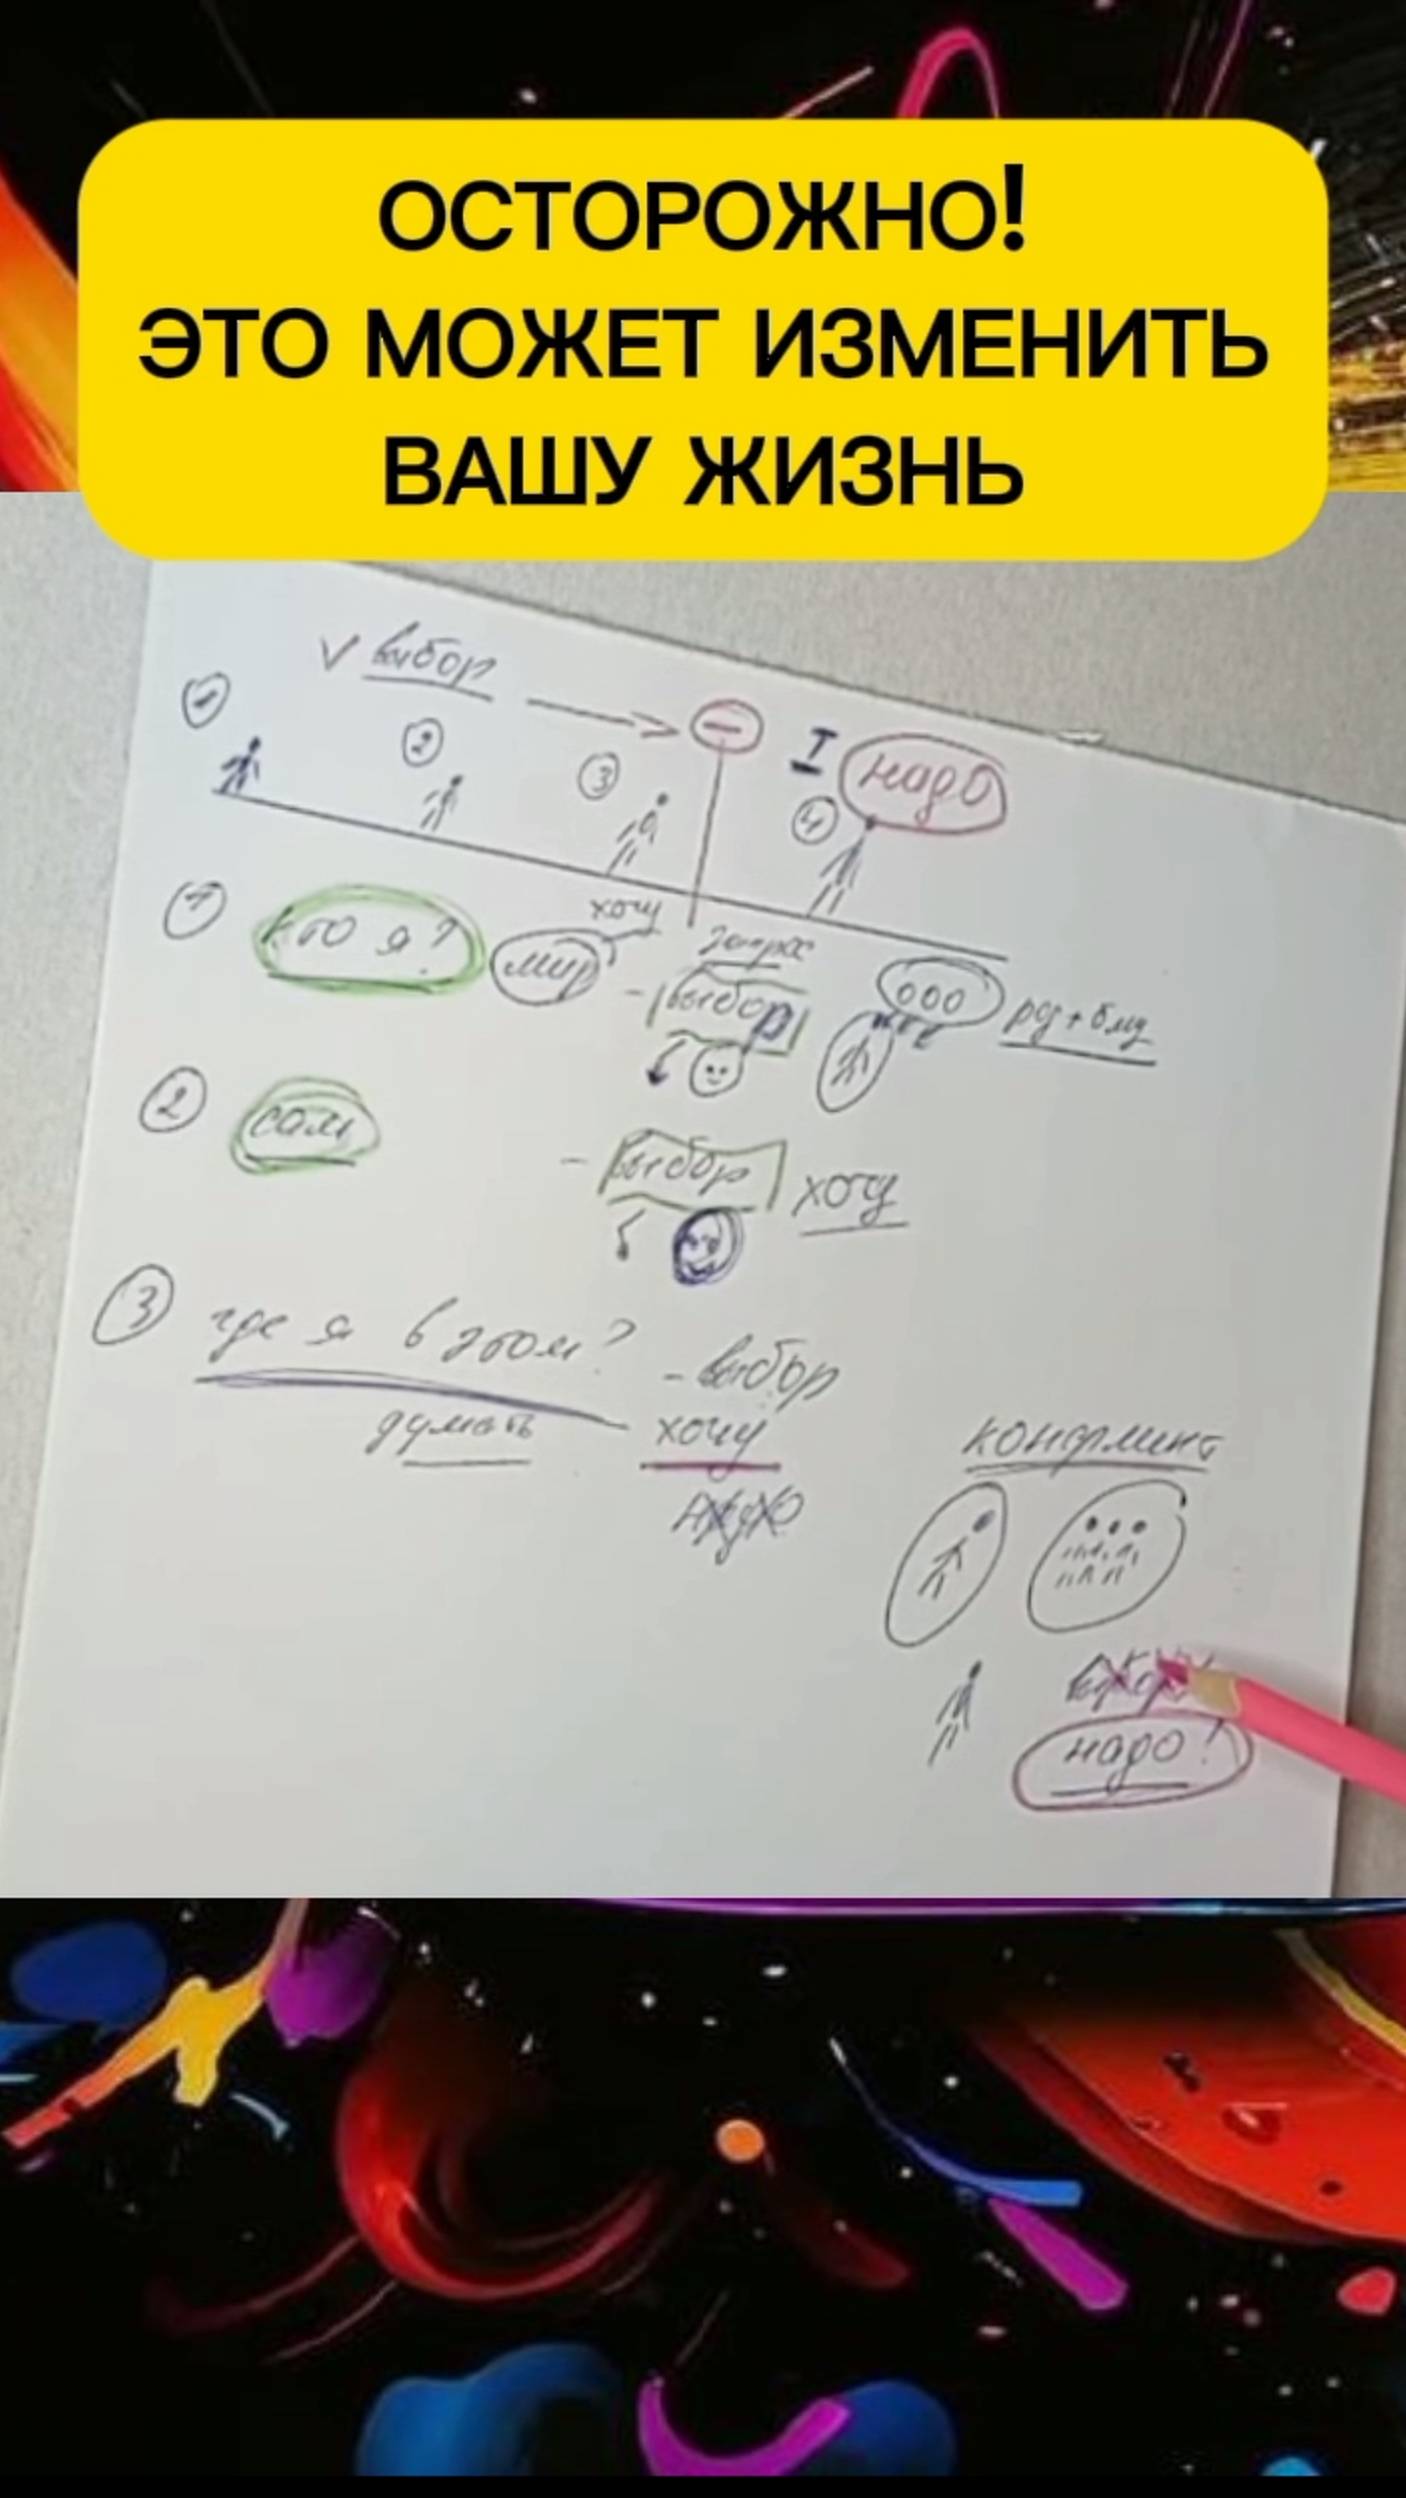 ОСТОРОЖНО!
ЭТО МОЖЕТ ИЗМЕНИТЬ
ВАШУ ЖИЗНЬ
V выбор
I надо
1 2 3 4
1 кто я? мир хочу запрос
- выбор
рд + бмд
2 сам - выбор хочу
3 где я в этом? - выбор
думать хочу
надо
конфликт
надо!